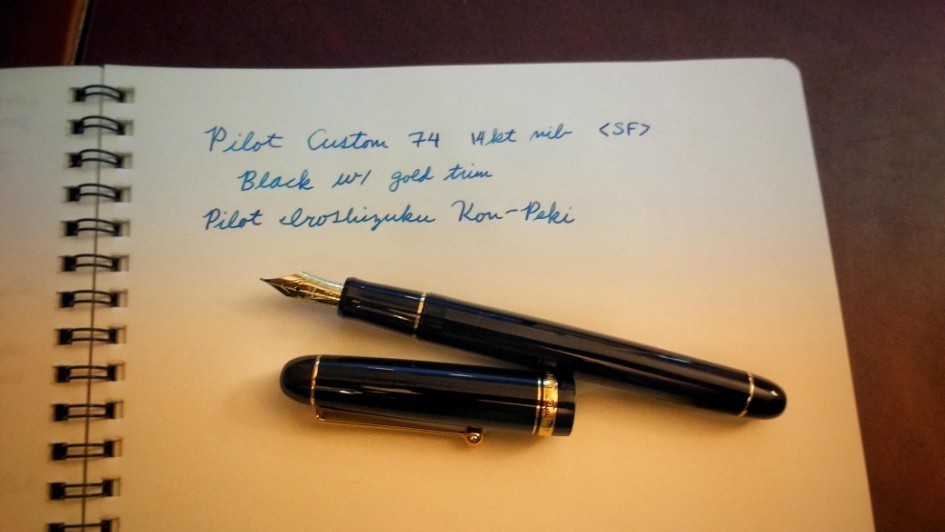 Pilot Custom 74 14kt nib <SF>
Black w/ gold trim
Pilot Iroshizuku Kon-Peki